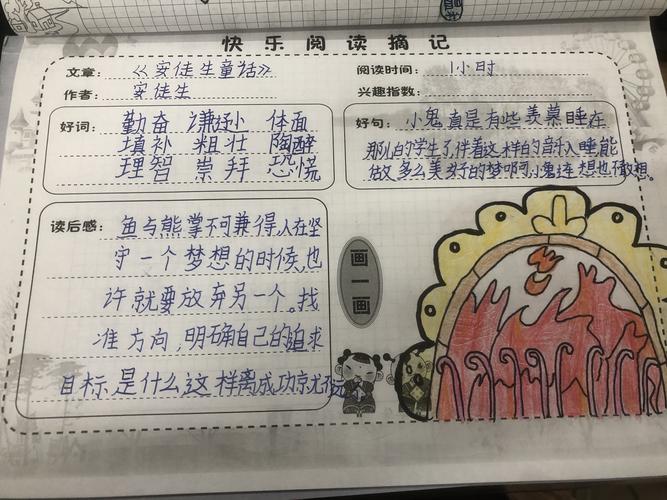 快乐阅读摘记
文章：《安徒生童话》
阅读时间：1小时
作者：安徒生
兴趣指数：
好词：勤奋 谦逊 体面
填补 粗壮 陶醉
理智 崇拜 恐慌
好句：小鬼真是有些羡慕睡在
那儿的学生了伴着这样的音乐入睡能
做多么美好的梦啊小鬼连想也不敢想。
读后感：鱼与熊掌不可兼得，人在坚
守一个梦想的时候，也
许就要放弃另一个。找
准方向，明确自己的追求
目标是什么这样离成功
画一画